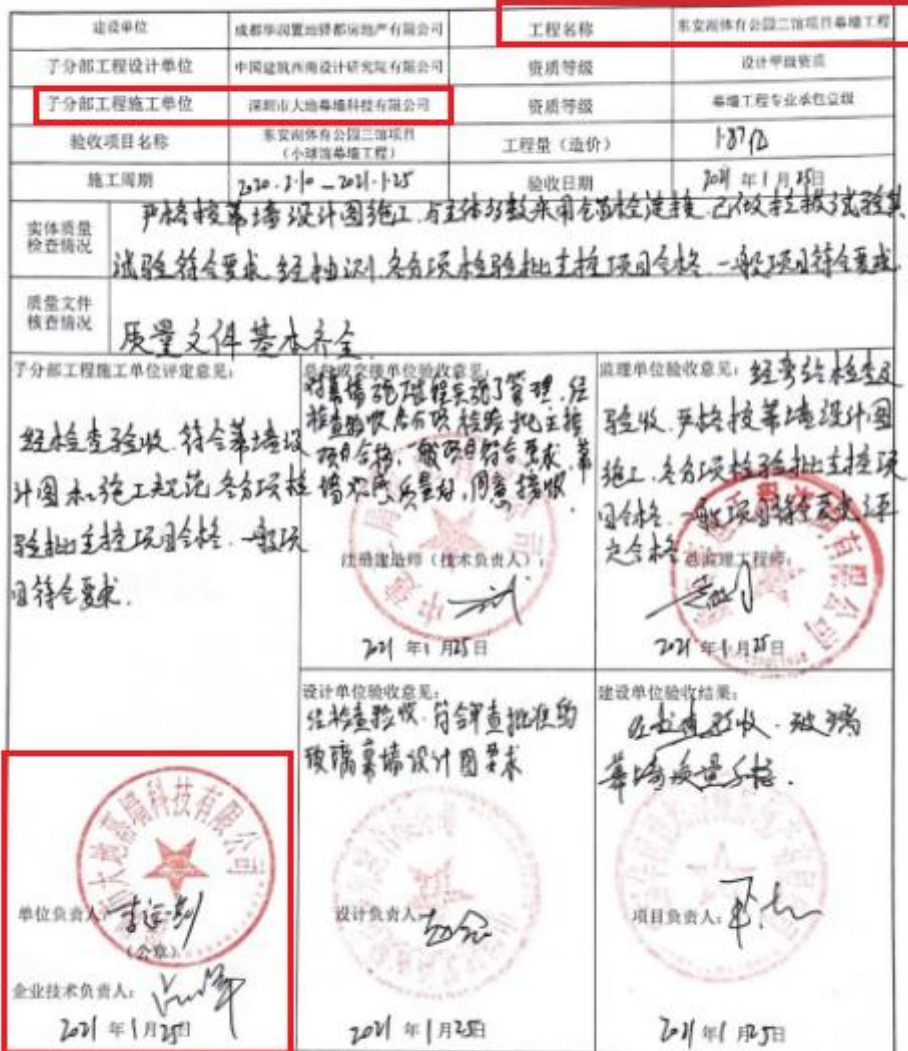 建设单位 成都华润置地驿都房地产有限公司 工程名称 东安湖体育公园三馆项目幕墙工程
子分部工程设计单位 中国建筑西南设计研究院有限公司 资质等级 设计甲级资质
子分部工程施工单位 深圳市大地幕墙科技有限公司 资质等级 幕墙工程专业承包壹级
验收项目名称 东安湖体育公园三馆项目 工程量（造价） 1.87亿
（小球馆幕墙工程）
施工周期 2020.3.10－2021.1.25 验收日期 2021年1月25日
实体质量 严格按幕墙设计图施工，与主体
检查情况 连接，已做拉拔试验其
试验符合要求，经抽测，各分项检验批主控项目合格，一般项目符合要求。
质量文件
核查情况 质量文件基本齐全
子分部工程施工单位评定意见：
经检查验收，符合幕墙设
计图和施工规范，各分项检
验批主控项目合格，一般项
目符合要求．
总包或交接单位验收意见：
对幕墙施工过程实施了管理，经
检查验收各分项检验批主控
项目合格，一般项目符合要求，幕
墙 质量好，同意接收
注册建造师（技术负责人）：
2021年1月25日
监理单位验收意见：
检查及
验收，严格按幕墙设计图
施工，各分项检验批主控项
目合格，一般项目符合要求，评
定合格
总监理工程师：
2021年1月25日
单位负责人：
（公章）
企业技术负责人：
2021年1月25日
大地幕墙科技有限公司
设计单位验收意见：
经检查验收，符合审查批准的
玻璃幕墙设计图要求
设计负责人：
2021年1月25日
建设单位验收结果：
经检查验收，玻璃
幕墙质量合格．
项目负责人：
2021年1月25日